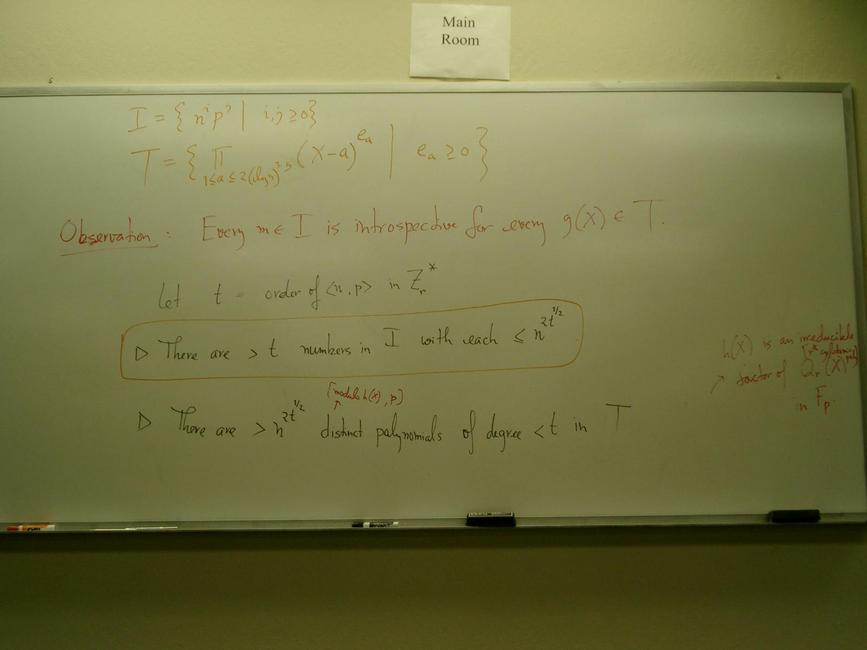 Main
Room
I = { nⁱ pʲ | i,j ≥ 0 }
T = { ∏ (X-a)^{e_a} | e_a ≥ 0 }
Observation : Every m ∈ I is introspective for every g(X) ∈ T.
Let t = order of <n,p> in Z_r^*
▷ There are > t numbers in I with each ≤ n^{2t^{1/2}}
[modulo h(X), p]
▷ There are > n^{2t^{1/2}} distinct polynomials of degree < t in T
h(X) is an irreducible
factor of Q_r(X)
in F_p.